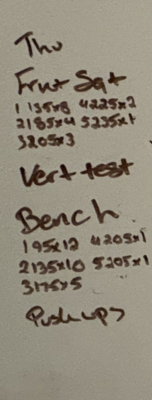 Thu
Frnt Sqt
1 135x8 4 225x2
2 185x4 5 235x1
3 205x3
Vert test
Bench
1 95x12 4 205x1
2 135x10 5 205x1
3 175x5
Push ups